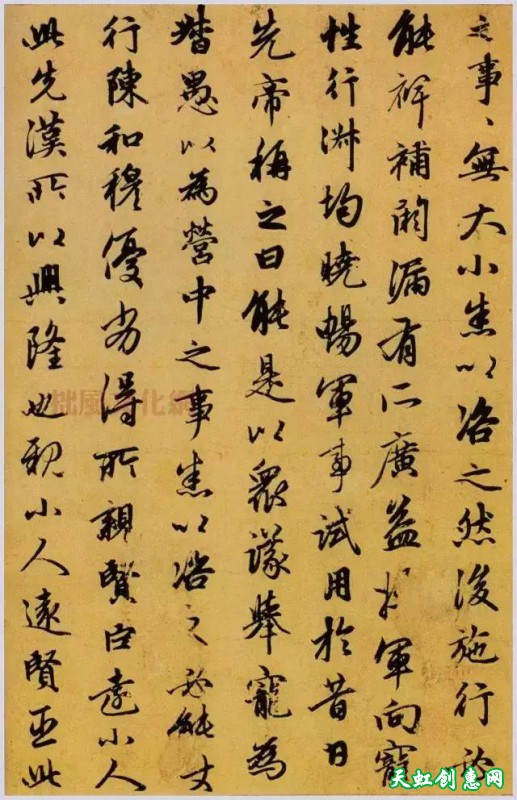 之事〻無大小悉以咨之然後施行必
能裨補闕漏有所廣益將軍向寵
性行淑均曉暢軍事試用於昔日
先帝稱之曰能是以衆議舉寵為
督愚以為營中之事悉以咨之必能使
行陳和穆優劣得所親賢臣遠小人
此先漢所以興隆也親小人遠賢臣此
拙風文化網
天虹创惠网